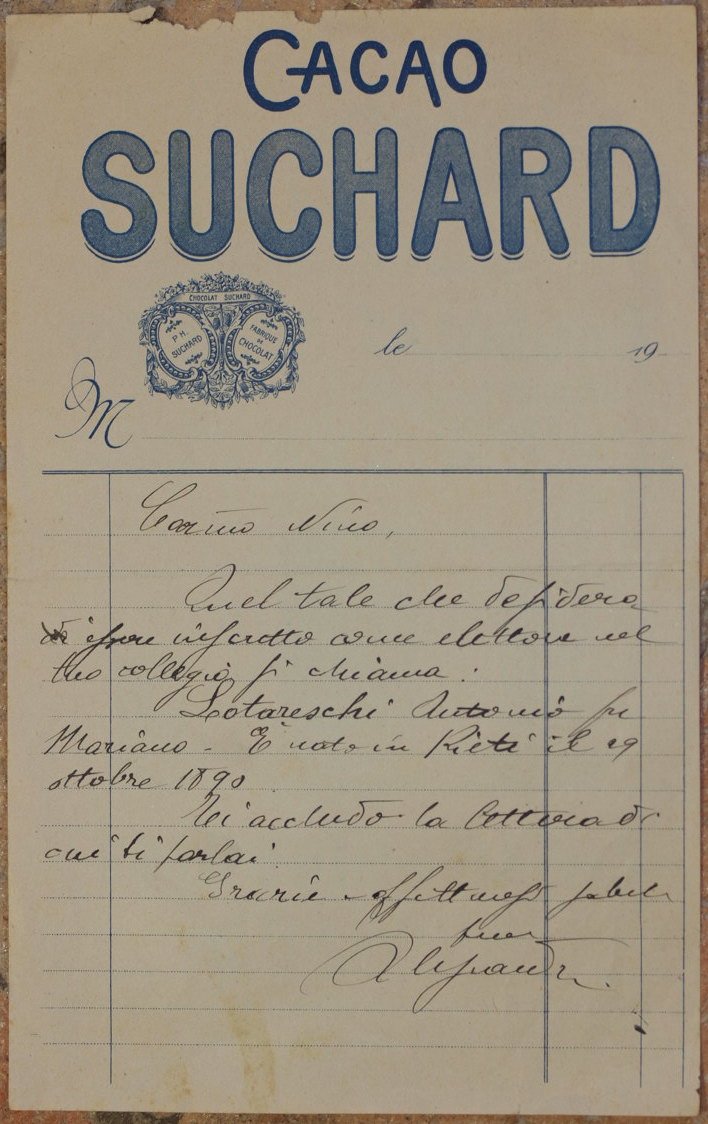 CACAO
SUCHARD
CHOCOLAT SUCHARD
PH.
SUCHARD
FABRIQUE
DE
CHOCOLAT
le 19
M
Carino Nino,
Quel tale che desidera
di essere inscritto come elettore nel
tuo collegio si chiama:
Lotareschi Antonio fu
Mariano - E' nato in Rieti il 29
ottobre 1890
Ti accludo la lettera di
cui ti parlai
Grazie affettuosi saluti
tuo